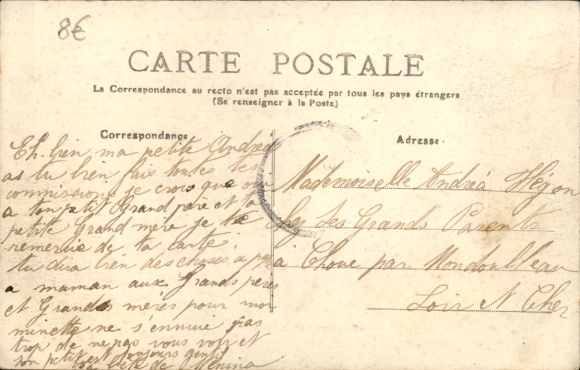 8€
CARTE POSTALE
La Correspondance au recto n'est pas acceptée par tous les pays étrangers
(Se renseigner à la Poste)
Correspondance
Adresse
Eh bien ma petite Andréa
as tu bien fais toutes tes
commissions je crois que oui
a ton petit Grand père et ta
petite Grand mère je te
remercie de ta carte.
tu dira bien des choses a papa
a maman aux Grands pères
et Grandes mères pour moi
minette ne s'ennuie pas
trop de ne pas vous voir et
son petit est toujours gentil
Mademoiselle Andréa
chez ses Grands Parents
a Choue par Mondoubleau
Loir et Cher